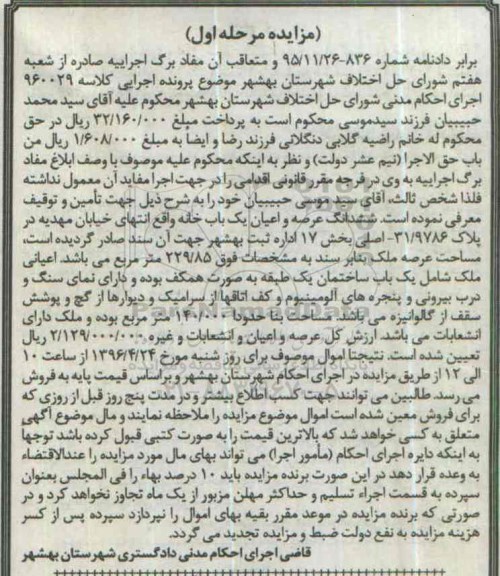 (مزایده مرحله اول)
برابر دادنامه شماره ۸۳۶-۹۵/۱۱/۲۶ و متعاقب آن مفاد برگ اجراییه صادره از شعبه
هفتم شورای حل اختلاف شهرستان بهشهر موضوع پرونده اجرایی کلاسه ۹۶۰۰۲۹
اجرای احکام مدنی شورای حل اختلاف شهرستان بهشهر محکوم علیه آقای سید محمد
حبیبیان فرزند سیدموسی محکوم است به پرداخت مبلغ ۳۲/۱۶۰/۰۰۰ ریال در حق
محکوم له خانم راضیه گلابی دنگلانی فرزند رضا و ایضاً به مبلغ ۱/۶۰۸/۰۰۰ ریال من
باب حق الاجرا (نیم عشر دولت) و نظر به اینکه محکوم علیه موصوف با وصف ابلاغ مفاد
برگ اجراییه به وی در فرجه مقرر قانونی اقدامی را در جهت اجرا مفاید آن معمول نداشته
فلذا شخص ثالث، آقای سید موسی حبیبیان خود را به شرح ذیل جهت تأمین و توقیف
معرفی نموده است. ششدانگ عرصه و اعیان یک باب خانه واقع انتهای خیابان مهدیه در
پلاک ۳۱/۹۷۸۶- اصلی بخش ۱۷ اداره ثبت بهشهر جهت آن سند صادر گردیده است،
مساحت عرصه ملک بنابر سند به مشخصات فوق ۲۲۹/۸۵ متر مربع می باشد. اعیانی
ملک شامل یک باب ساختمان یک طبقه به صورت همکف بوده و دارای نمای سنگ و
درب بیرونی و پنجره های آلومینیوم و کف اتاقها از سرامیک و دیوارها از گچ و پوشش
سقف از گالوانیزه می باشد. مساحت بنا حدوداً ۱۴۰/۰۰ متر مربع بوده و ملک دارای
انشعابات می باشد. ارزش کل عرصه و اعیان و انشعابات و غیره ۲/۱۲۹/۰۰۰/۰۰۰ ریال
تعیین شده است. نتیجتاً اموال موصوف برای روز شنبه مورخ ۱۳۹۶/۴/۲۴ از ساعت ۱۰
الی ۱۲ از طریق مزایده در اجرای احکام شهرستان بهشهر و براساس قیمت پایه به فروش
می رسد. طالبین می توانند جهت کسب اطلاع بیشتر و در مدت پنج روز قبل از روزی که
برای فروش معین شده است اموال موضوع مزایده را ملاحظه نمایند و مال موضوع آگهی
متعلق به کسی خواهد شد که بالاترین قیمت را به صورت کتبی قبول کرده باشد توجهاً
به اینکه دایره اجرای احکام (مأمور اجرا) می تواند بهای مال مورد مزایده را عندالاقتضاء
به وعده قرار دهد در این صورت برنده مزایده باید ۱۰ درصد بهاء را فی المجلس بعنوان
سپرده به قسمت اجراء تسلیم و حداکثر مهلن مزبور از یک ماه تجاوز نخواهد کرد و در
صورتی که برنده مزایده در موعد مقرر بقیه بهای اموال را نپردازد سپرده پس از کسر
هزینه مزایده به نفع دولت ضبط و مزایده تجدید می گردد.
قاضی اجرای احکام مدنی دادگستری شهرستان بهشهر